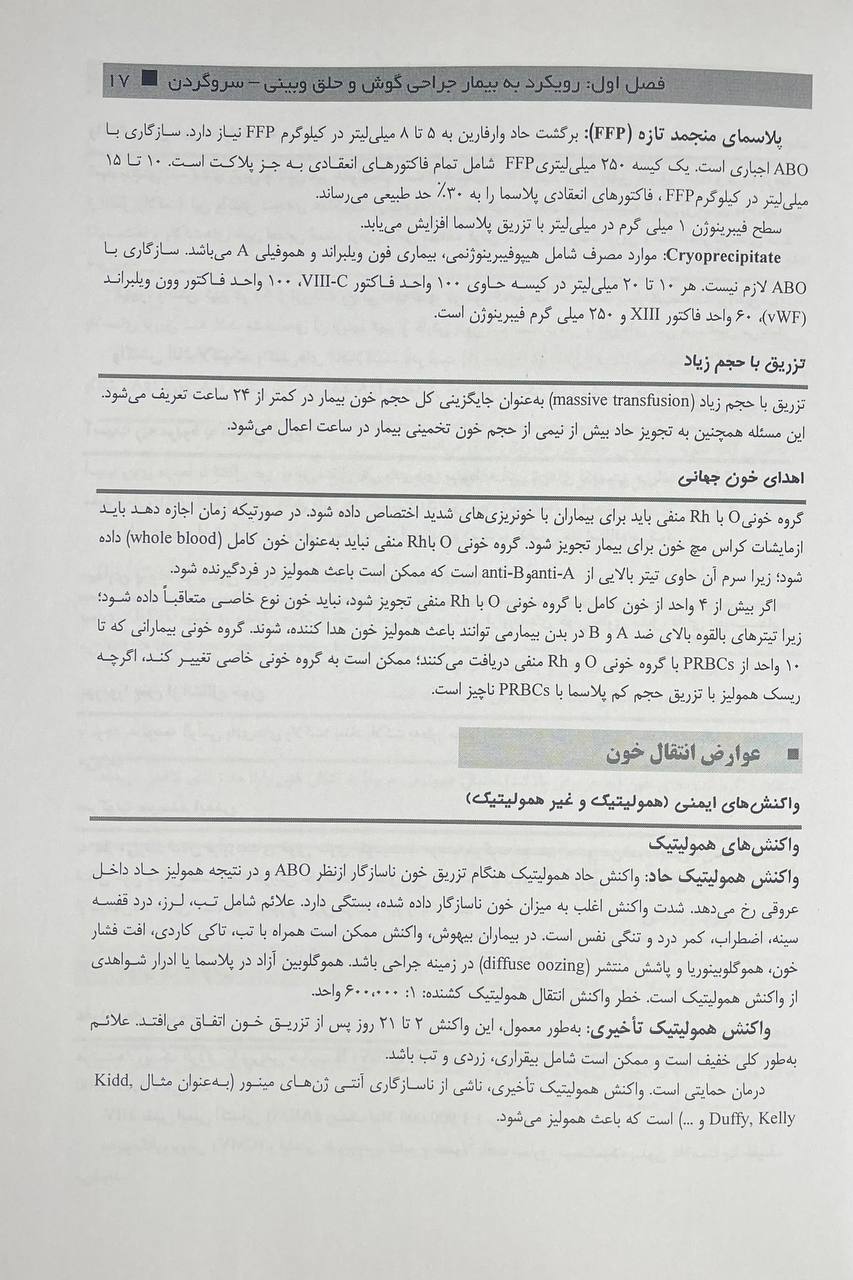 فصل اول: رویکرد به بیمار جراحی گوش و حلق وبینی – سروگردن ■ ۱۷
پلاسمای منجمد تازه (FFP): برگشت حاد وارفارین به ۵ تا ۸ میلی‌لیتر در کیلوگرم FFP نیاز دارد. سازگاری با
ABO اجباری است. یک کیسه ۲۵۰ میلی‌لیتری FFP شامل تمام فاکتورهای انعقادی به جز پلاکت است. ۱۰ تا ۱۵
میلی‌لیتر در کیلوگرم FFP ، فاکتورهای انعقادی پلاسما را به ۳۰٪ حد طبیعی می‌رساند.
سطح فیبرینوژن ۱ میلی گرم در میلی‌لیتر با تزریق پلاسما افزایش می‌یابد.
Cryoprecipitate: موارد مصرف شامل هیپوفیبرینوژنمی، بیماری فون ویلبراند و هموفیلی A می‌باشد. سازگاری با
ABO لازم نیست. هر ۱۰ تا ۲۰ میلی‌لیتر در کیسه حاوی ۱۰۰ واحد فاکتور VIII-C، ۱۰۰ واحد فاکتور وون ویلبراند
(vWF)، ۶۰ واحد فاکتور XIII و ۲۵۰ میلی گرم فیبرینوژن است.
تزریق با حجم زیاد
تزریق با حجم زیاد (massive transfusion) به‌عنوان جایگزینی کل حجم خون بیمار در کمتر از ۲۴ ساعت تعریف می‌شود.
این مسئله همچنین به تجویز حاد بیش از نیمی از حجم خون تخمینی بیمار در ساعت اعمال می‌شود.
اهدای خون جهانی
گروه خونی O با Rh منفی باید برای بیماران با خونریزی‌های شدید اختصاص داده شود. در صورتیکه زمان اجازه دهد باید
ازمایشات کراس مچ خون برای بیمار تجویز شود. گروه خونی O با Rh منفی نباید به‌عنوان خون کامل (whole blood) داده
شود؛ زیرا سرم آن حاوی تیتر بالایی از anti-A و anti-B است که ممکن است باعث همولیز در فردگیرنده شود.
اگر بیش از ۴ واحد از خون کامل با گروه خونی O با Rh منفی تجویز شود، نباید خون نوع خاصی متعاقباً داده شود؛
زیرا تیترهای بالقوه بالای ضد A و B در بدن بیمارمی توانند باعث همولیز خون هدا کننده، شوند. گروه خونی بیمارانی که تا
۱۰ واحد از PRBCs با گروه خونی O و Rh منفی دریافت می‌کنند؛ ممکن است به گروه خونی خاصی تغییر کند، اگرچه
ریسک همولیز با تزریق حجم کم پلاسما با PRBCs ناچیز است.
■ عوارض انتقال خون
واکنش‌های ایمنی (همولیتیک و غیر همولیتیک)
واکنش‌های همولیتیک
واکنش همولیتیک حاد: واکنش حاد همولیتیک هنگام تزریق خون ناسازگار ازنظر ABO و در نتیجه همولیز حاد داخل
عروقی رخ می‌دهد. شدت واکنش اغلب به میزان خون ناسازگار داده شده، بستگی دارد. علائم شامل تب، لرز، درد قفسه
سینه، اضطراب، کمر درد و تنگی نفس است. در بیماران بیهوش، واکنش ممکن است همراه با تب، تاکی کاردی، افت فشار
خون، هموگلوبینوریا و پاشش منتشر (diffuse oozing) در زمینه جراحی باشد. هموگلوبین آزاد در پلاسما یا ادرار شواهدی
از واکنش همولیتیک است. خطر واکنش انتقال همولیتیک کشنده: ۱: ۶۰۰،۰۰۰ واحد.
واکنش همولیتیک تأخیری: به‌طور معمول، این واکنش ۲ تا ۲۱ روز پس از تزریق خون اتفاق می‌افتد. علائم
به‌طور کلی خفیف است و ممکن است شامل بیقراری، زردی و تب باشد.
درمان حمایتی است. واکنش همولیتیک تأخیری، ناشی از ناسازگاری آنتی ژن‌های مینور (به‌عنوان مثال Kidd,
Duffy, Kelly و ...) است که باعث همولیز می‌شود.